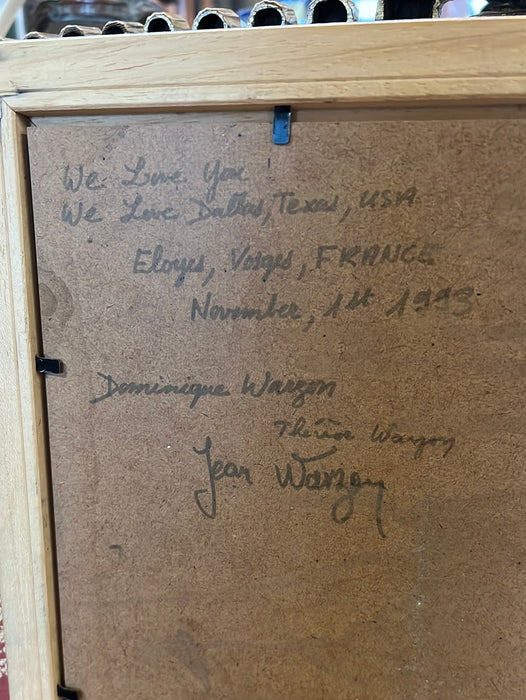 We Love You
We Love Dallas, Texas, USA
Eloyes, Vosges, FRANCE
November, 1st 1993
Dominique Warzon
Thérèse Warzon
Jean Warzon